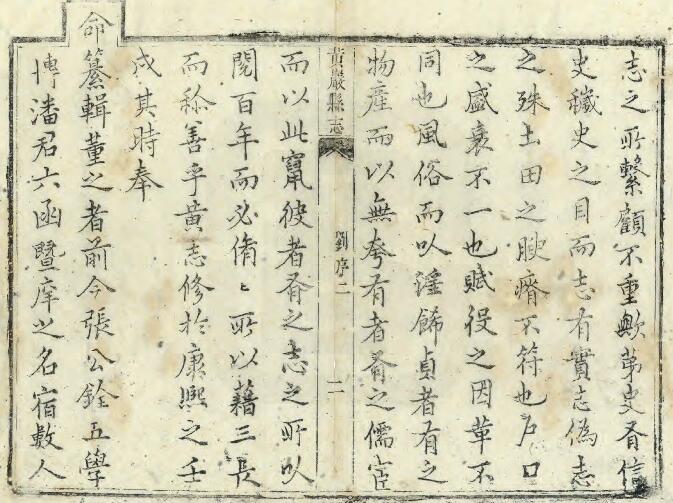 志之所繫顧不重歟第史有信
史穢史之目而志有實志偽志
之殊土田之腴瘠不符也戶口
之盛衰不一也賦役之因革不
同也風俗而以淫餙貞者有之
物產而以無夸有者有之儒宦
黃巖縣志
劉序二
二
而以此竄彼者有之志之所以
閱百年而必脩〻所以藉三長
而称善乎黃志修於康熙之壬
戌其時奉
命纂輯董之者前令張公銓五學
博潘君六函暨庠之名宿數人